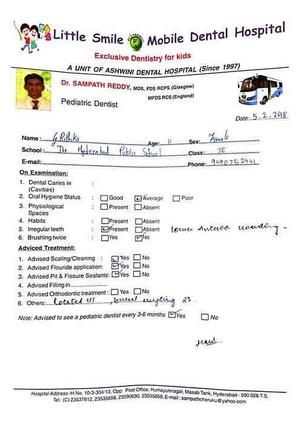 Little Smile Mobile Dental Hospital
Exclusive Dentistry for kids
A UNIT OF ASHWINI DENTAL HOSPITAL (Since 1997)
Dr. SAMPATH REDDY, MDS, FDS RCPS (Glasgow)
MFDS RCS (England)
Pediatric Dentist
Date: 5.2.2018
Name: Age: 11 Sex: Female
School: The Hyderabad Public School Class: 7E
E-mail: Phone:
On Examination:
1. Dental Caries in :
(Cavities)
2. Oral Hygiene Status : Good Average Poor
3. Physiological : Present Absent
Spaces
4. Habits : Present Absent
5. Irregular teeth : Present Absent lower Anterior crowding
6. Brushing twice : Yes No
Adviced Treatment:
1. Advised Scaling/Cleaning : Yes No
2. Advised Flouride application: Yes No
3. Advised Pit & Fissure Sealants: Yes No
4. Advised Filling in
5. Advised Orthodontic treatment : Yes No
6. Others: Rotated 23
Note: Advised to see a pediatric dentist every 3-6 months Yes No
Hospital Address:-H.No. 10-3-304/13, Opp: Post Office, Humayunnagar, Masab Tank, Hyderabad - 500 028.T.S.
Tel: (C) 23537612, 23535658, 23559090, 23535858, E-mail: sampathcheruku@yahoo.com